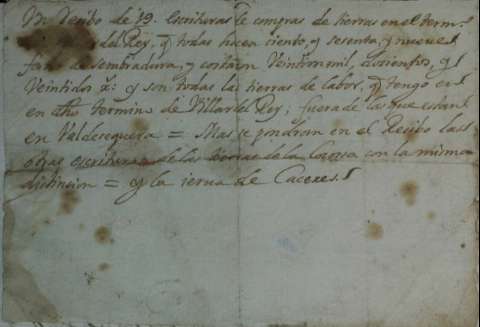 Un Recibo de 19. Escrituras de compras de tierras en el term-
del Rey, q todas hacen ciento, y sesenta, y nueve
fans de sembradura, y costaron Veintiun mil, doscientos, y
Veintidos rs: y son todas las tierras de labor, q tengo en
en dho termino de Villar del Rey; fuera de las que estan
en Valdesequera = Mas se pondran en el Recibo las
otras escrituras de las tierras de la con la misma
distincion = y la ierva de Caceres.